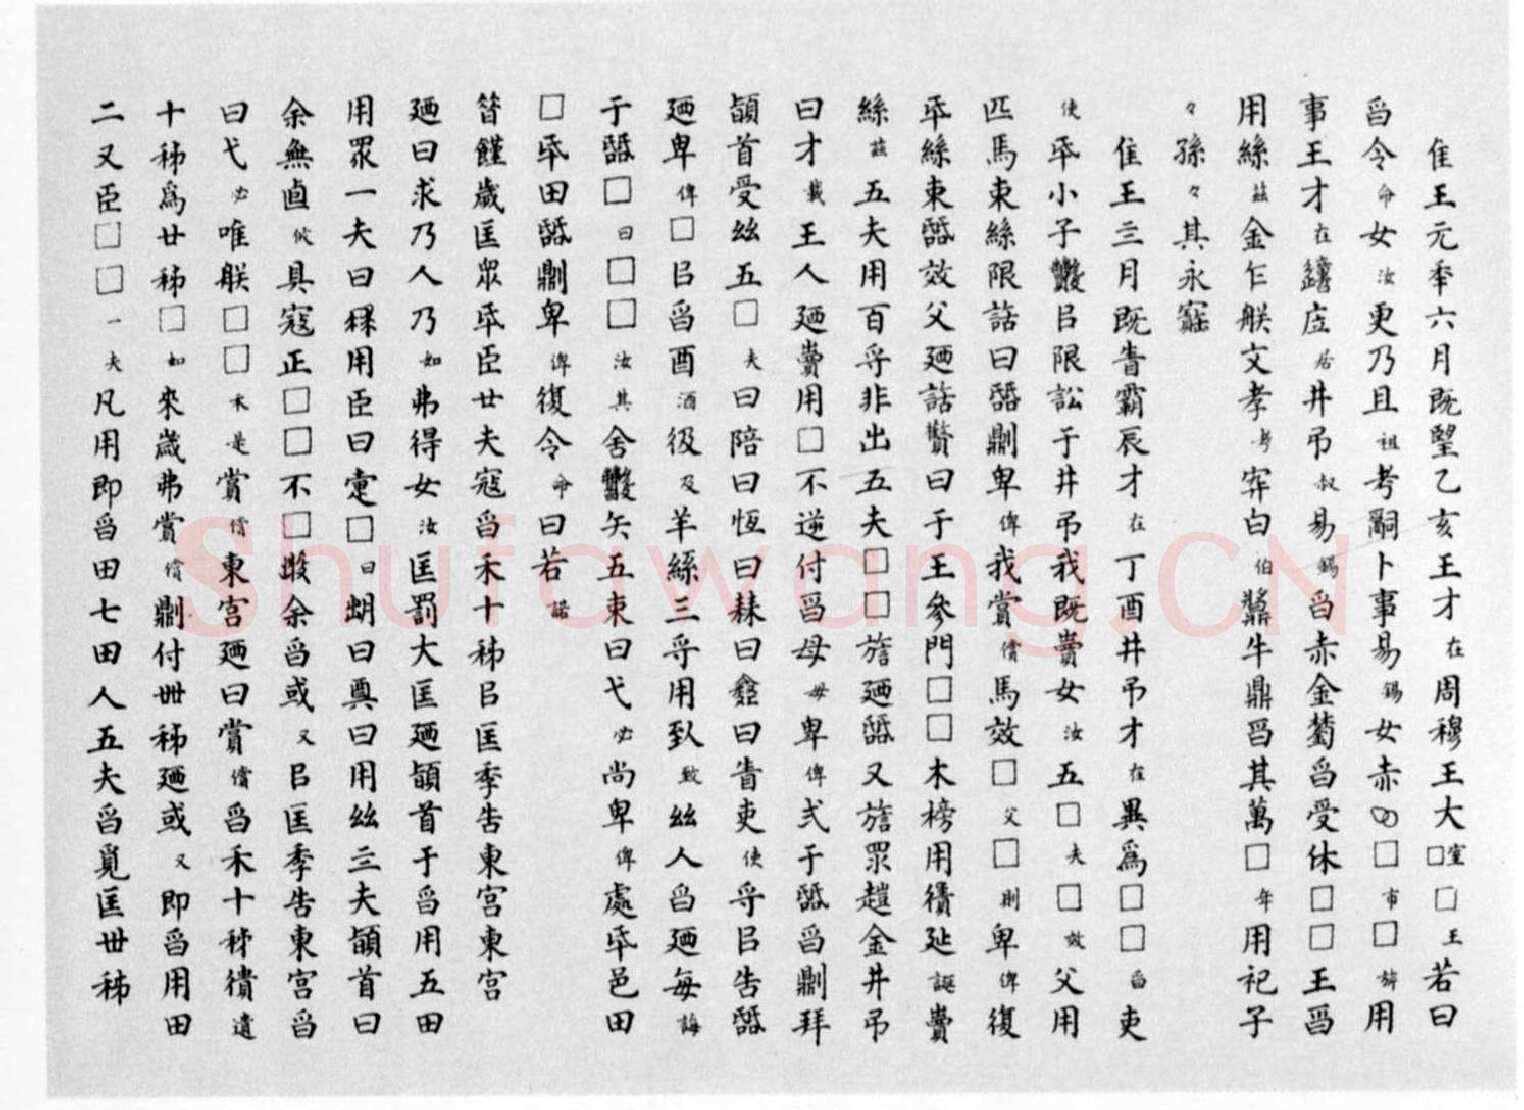 隹王元年六月既望乙亥王才在周穆王大□室□王若曰
曶令命女汝更乃且祖考嗣卜事易錫女赤□市□旂用
事王才在□庢居井弔叔易錫曶赤金□曶受休□□王曶
用絲茲金乍朕文孝考宑白伯牛鼎曶其萬□年用祀子
々孫々其永寶
隹王三月既眚霸辰才在丁酉井弔才在異爲□□曶吏
使氒小子㠯限訟于井弔我既賣女汝五□夫□效父用
匹馬束絲限誥曰則卑俾我賞償馬效□父□則卑俾復
氒絲束效父廼誥曰于王參門□□木榜用徝延誕賣
絲茲五夫用百寽非出五夫□□廼又眔金井弔
曰才載王人廼賣用□不逆付曶母毋卑俾式于曶則拜
頴首受丝五□夫曰陪曰恆曰曰曰眚吏使寽㠯告
廼卑俾□㠯曶酉酒彶及羊絲三寽用致丝人曶廼每誨
于□曰□□汝其舍矢五束曰弋必尚卑俾處氒邑田
□氒田則卑俾復令命曰若諾
昔饉歲匡眾氒臣廿夫寇曶禾十秭㠯匡季告東宮東宮
廼曰求乃人乃如弗得女汝匡罰大匡廼頴首于曶用五田
用眾一夫曰用臣曰疐□曰曰奠曰用丝三夫頴首曰
余無卣攸具寇正□□不□余曶或又㠯匡季告東宮曶
曰弋必唯朕□□求是賞償東宮廼曰賞償曶禾十秭遺
十秭爲廿秭□如來歲弗賞償則付卌秭廼或又即曶用田
二又臣□□一夫凡用即曶田七田人五夫曶覓匡卅秭
Shufawang.CN